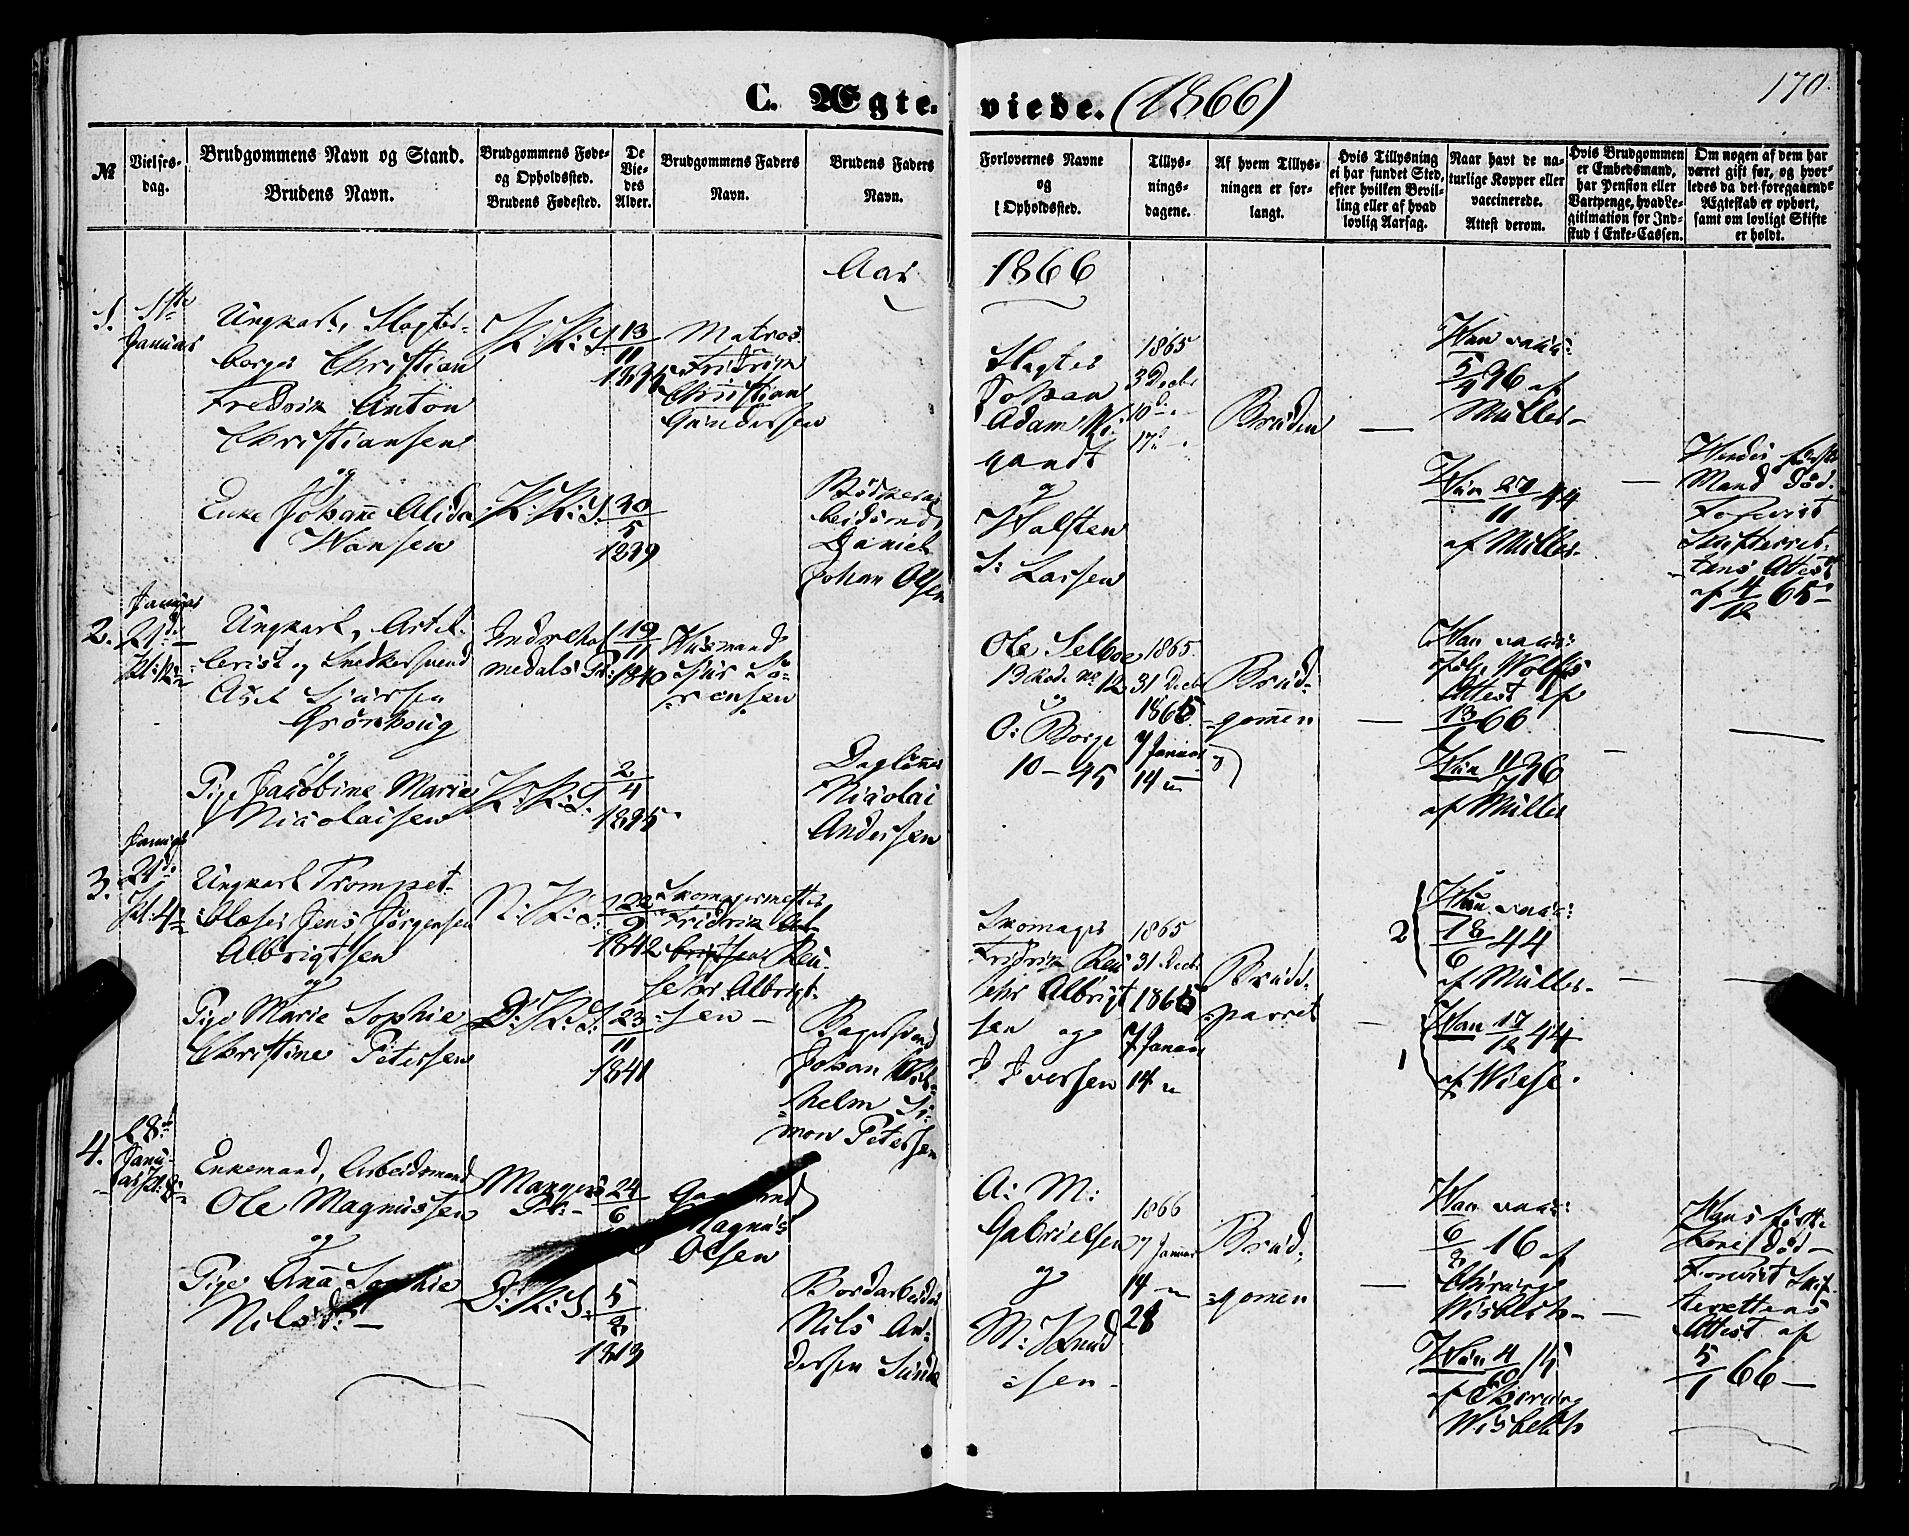 170.
C. Ægte-viede. (1866)
№
Vielses-
dag.
Brudgommens Navn og Stand.
Brudens Navn.
Brudgommens Føde-
og Opholdssted.
Brudens Fødested.
De
Vie-
des
Alder.
Brudgommens Faders
Navn.
Brudens Faders
Navn.
Forlovernes Navne
og
Opholdssted.
Tillys-
nings-
dagene.
Af hvem Tillys-
ningen er for-
langt.
Hvis Tillysning
ei har fundet Sted,
efter hvilken Bevil-
ling eller af hvad
lovlig Aarsag.
Naar havt de na-
turlige Kopper eller
vaccinerede.
Attest derom.
Hvis Brudgommen
er Embedsmand,
har Pension eller
Vartpenge, hvad Le-
gitimation for Ind-
skud i Enke-Cassen.
Om nogen af dem har
været gift før, og hvor-
ledes da det foregaaende
Ægteskab er ophørt,
samt om lovligt Skifte
er holdt.
Aar 1866
1.
1ste
Januar
Ungkarl, Slagter-
borger Christian
Fredrik Anton
Christiansen
og
Enke Johanne Alida
Hansen
13
11
30
5
1839
Matros
Fridrik
Christian
Gundersen
Daniel
Johan Olsen
Slagter
Johan
Adam Wi-
gandt
og
Halsten
S: Larsen
1865
3 Decbr
10 d.
17 d.
Bruden
Han vacc:
5/4 36 af
Müller
Hun 27/11 44
af Müller
Hendes første
Mand død.
Forevist
Skifteret-
tens Attest
af 4/12 65
2.
Januar
21d.
Ungkarl, Artil-
lerist og Snedkersvend
Axel Siursen
Grønhoug
og
Pige Jacobine Marie
Nicolaisen
19
11
1840
2
4
Husmand
Siur Sø-
rensen
Dagløner
Nicolai
Andersen
Ole Selboe
19 Rode No 12
og
O: Borge
10 - 45
1865.
31 Decbr
1866
7 Januar
14 "
Brud-
gomen
Han vacc:
Attest af
13/1 66
af Müller
3.
Januar
21d.
Kl: 4
Ungkarl Trompet-
blæser Jens Jørgensen
Albrigtsen
og
Pige Marie Sophie
Christine Petersen
N: K: S:
D: K: S:
22
9
1842
23
11
1841
Skomagermester
Fridrik
Albrigt-
sen
Bagersvend
Johan Wil-
helm Si-
mon Petersen
Skomager
Fridrik
Albrigt-
sen og
J Iversen
1865
31 Decbr
1866
7 Januar
14 "
Brude-
parret
2
Hun vacc:
18/6 44
af Müller
1
Han 17/12 44
af Wiese.
4.
28d
Janu-
ar
Enkemand, Arbeidsmand
Ole Magnussen
og
Pige Anna Sophie
Nilsd:
Mangers
Pr:
D: K: S:
24
6
5
2
1813
Magnus
Olsen
Bordarbeider
Nils An-
dersen Sunde
A: M:
Gabrielsen
og
M: Knud-
sen
1866
7 Januar
14 "
21
Brud-
gomen
Han vacc:
6/2 16 af
Chirurg
Wisbech
Hun 4/10 15
af Chirurg
Wisbech
Hans første
Kone død
Forevist Skif-
terettens
Attest af
5/1 66